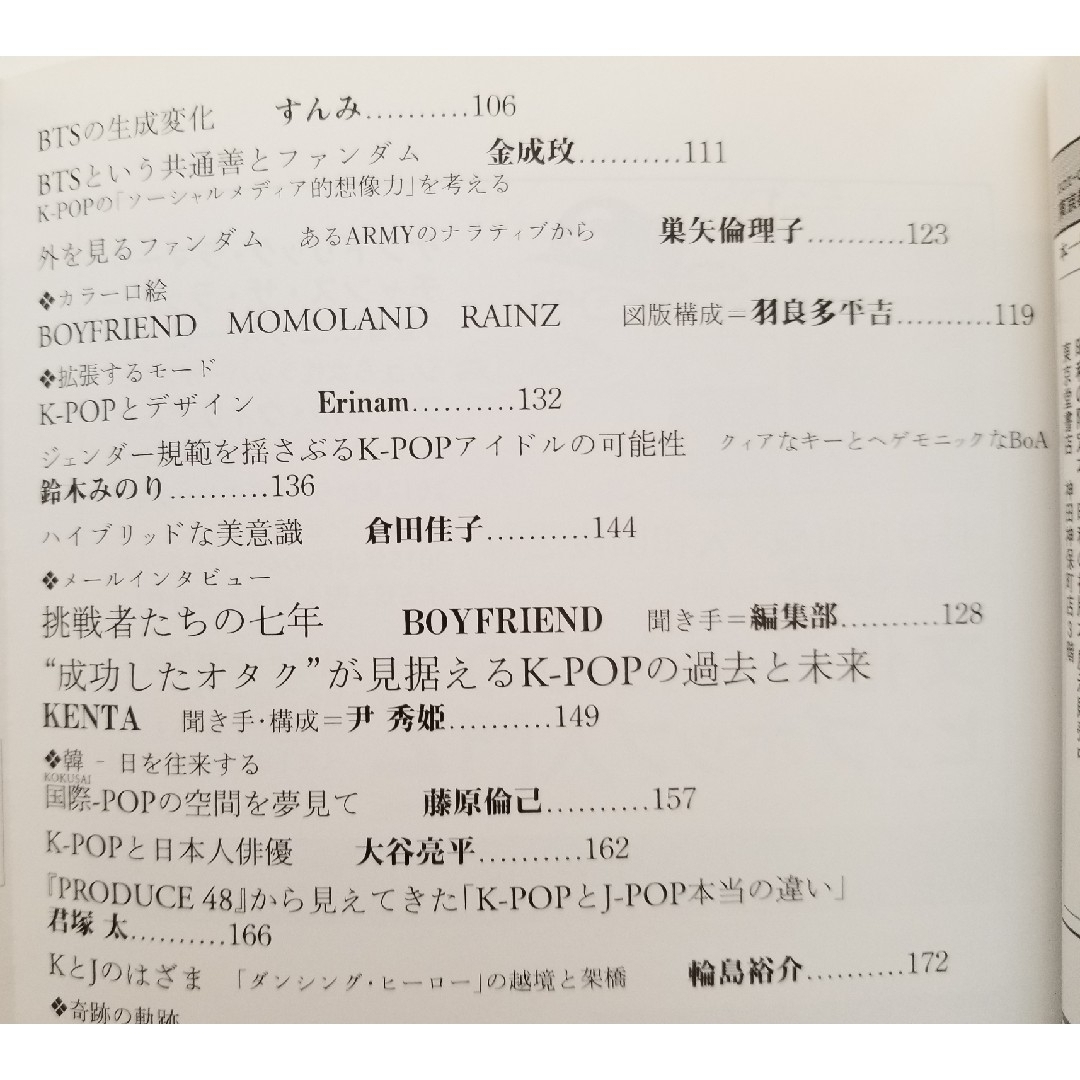 BTSの生成変化 すんみ..........106
BTSという共通善とファンダム 金成玟..........111
K-POPの「ソーシャルメディア的想像力」を考える
外を見るファンダム あるARMYのナラティブから 巣矢倫理子..........123
❖カラー口絵
BOYFRIEND MOMOLAND RAINZ 図版構成=羽良多平吉..........119
❖拡張するモード
K-POPとデザイン Erinam..........132
ジェンダー規範を揺さぶるK-POPアイドルの可能性 クィアなキーとヘゲモニックなBoA
鈴木みのり..........136
ハイブリッドな美意識 倉田佳子..........144
❖メールインタビュー
挑戦者たちの七年 BOYFRIEND 聞き手=編集部..........128
“成功したオタク”が見据えるK-POPの過去と未来
KENTA 聞き手・構成=尹 秀姫..........149
❖韓 - 日を往来する
KOKUSAI
国際-POPの空間を夢見て 藤原倫己..........157
K-POPと日本人俳優 大谷亮平..........162
『PRODUCE 48』から見えてきた「K-POPとJ-POP本当の違い」
君塚 太..........166
KとJのはざま 「ダンシング・ヒーロー」の越境と架橋 輪島裕介..........172
❖奇跡の軌跡
東京堂書店 神田神保町店3階